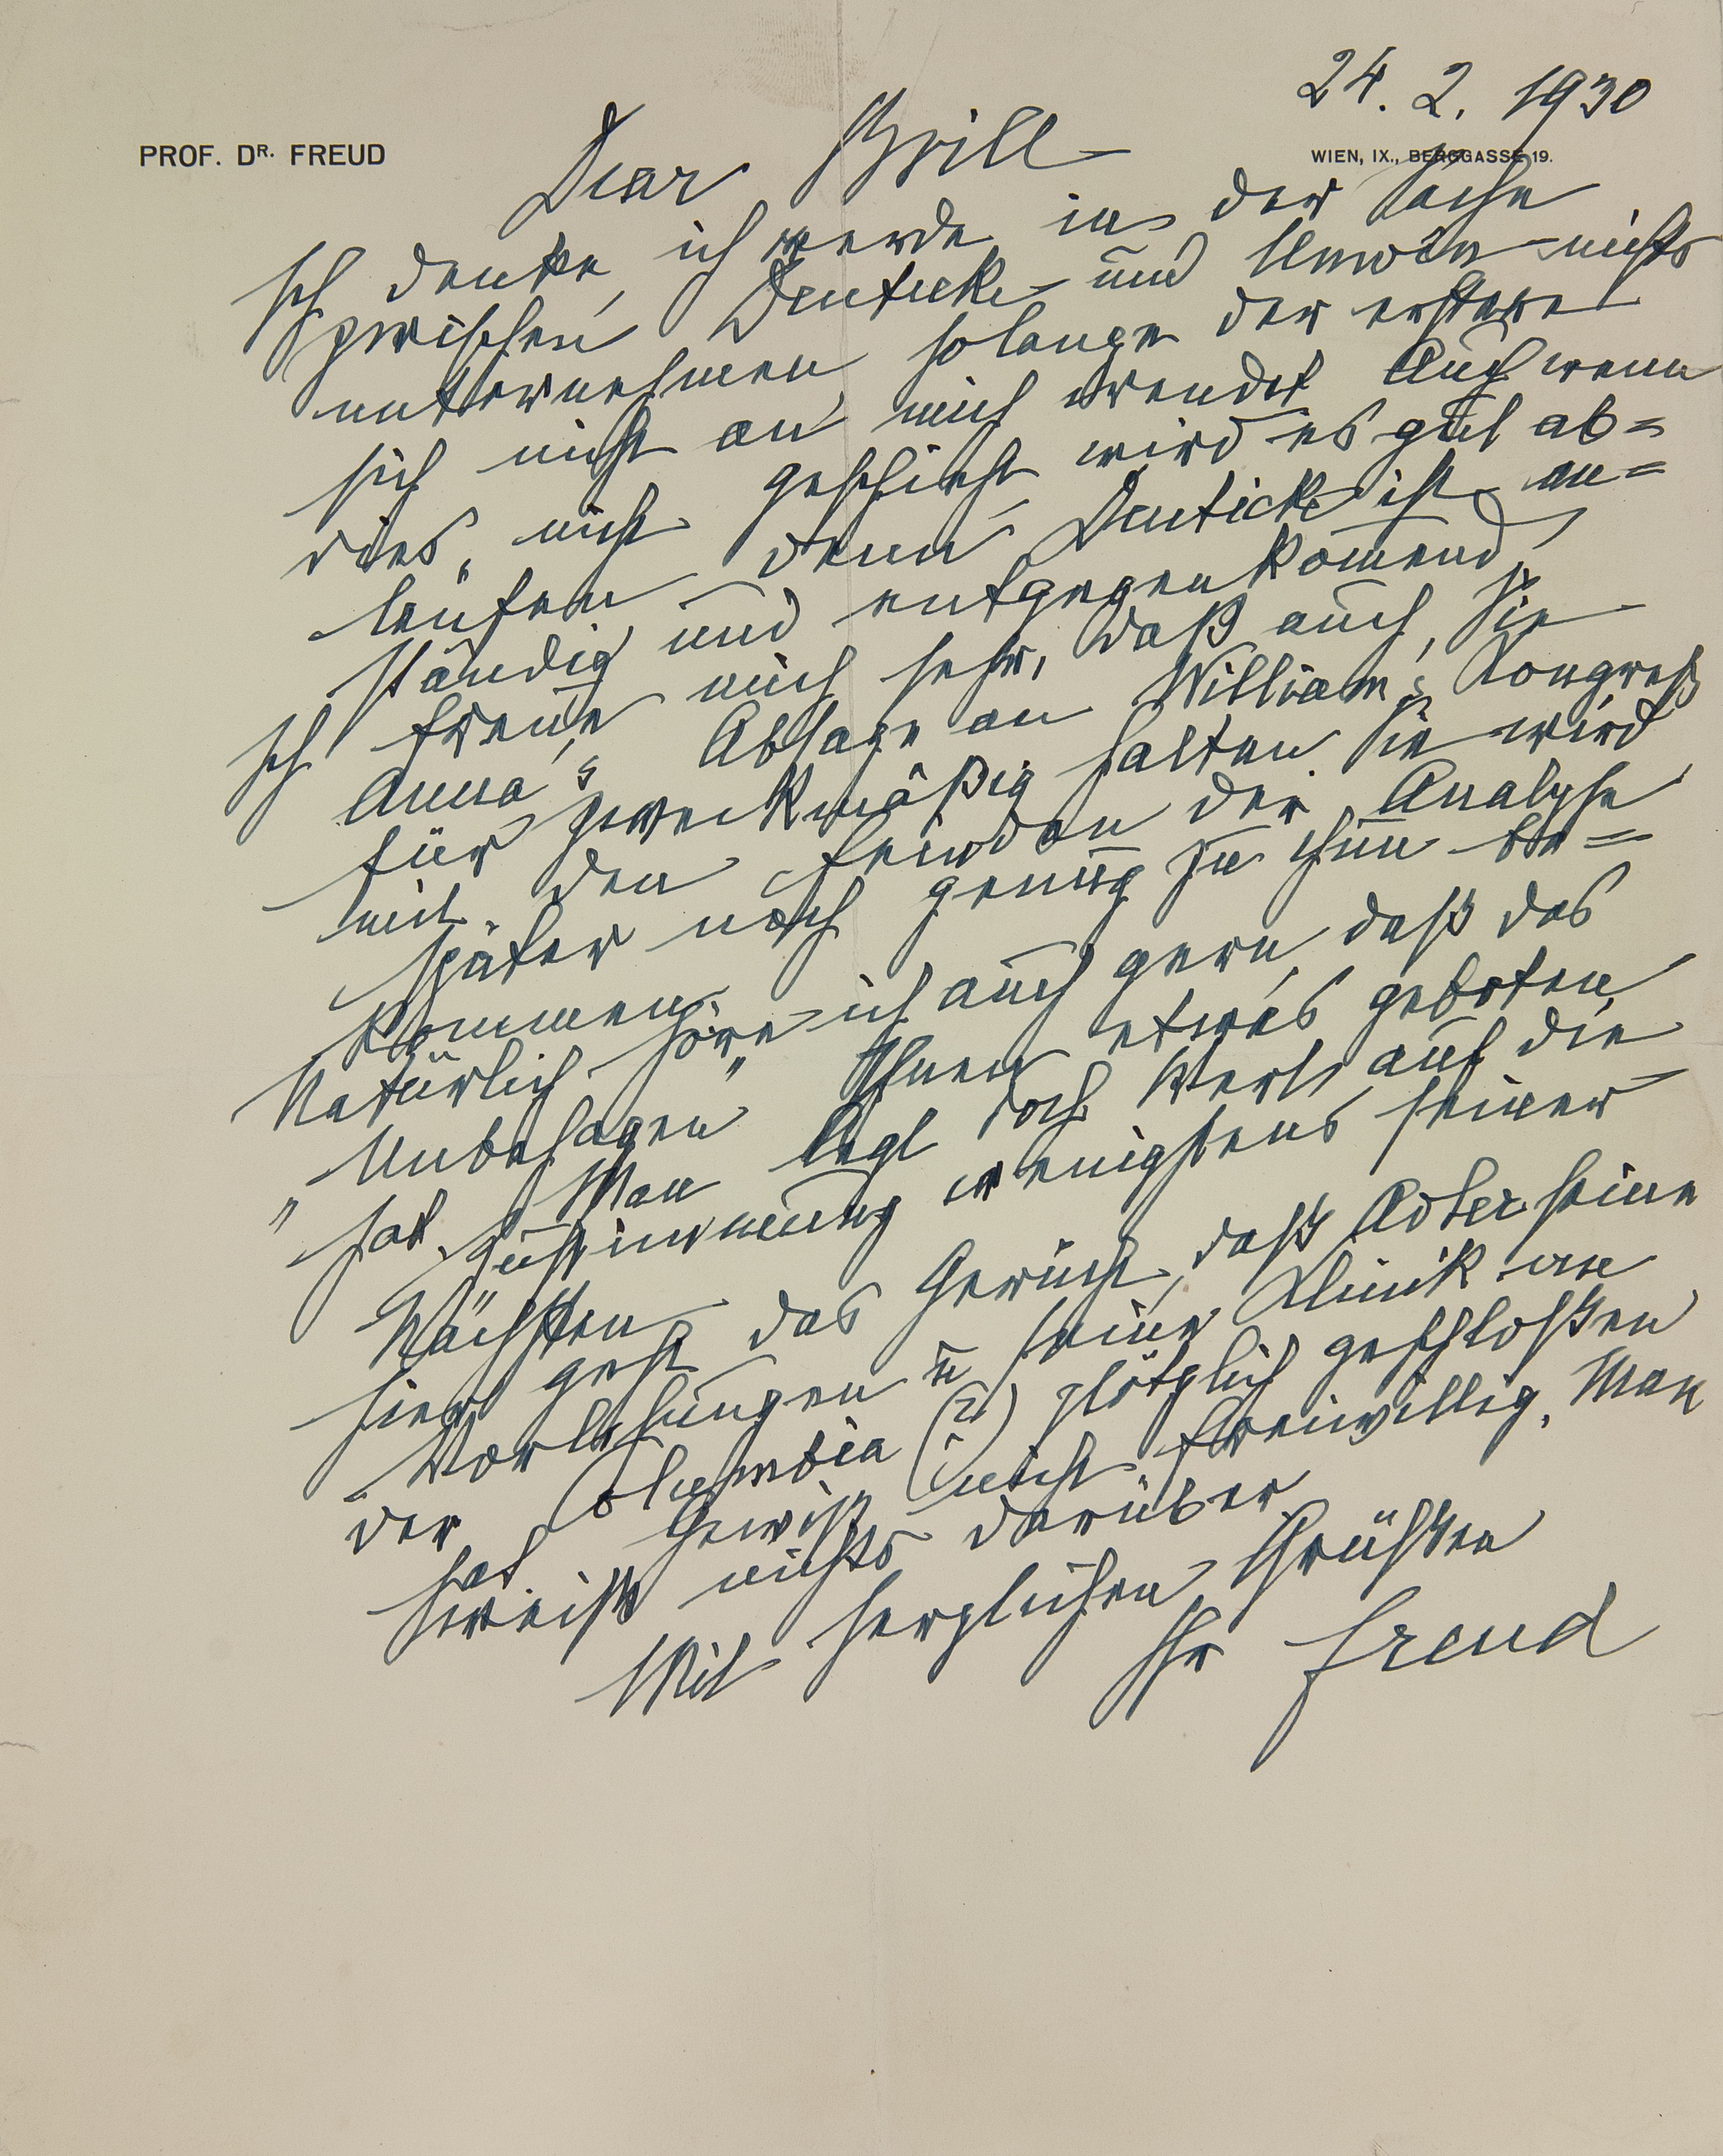 24. 2. 1930
PROF. DR. FREUD
WIEN, IX., BERGGASSE 19.
Dear Brill
Ich denke, ich werde in der Sache
zwischen Deuticke und Unwin nichts
unternehmen solange der erstere
sich nicht an mich wendet. Auch wenn
dies nicht geschieht, wird es gut ab=
laufen denn Deuticke ist an=
ständig und entgegenkom̄end.
Ich freue mich sehr, daß auch Sie
Anna's Absage an William's Kongreß
für zweckmäßig halten. Sie wird
mit den Feinden der Analyse
später noch genug zu thun be=
kommen.
Natürlich höre ich auch gern, daß das
„Unbehagen" Ihnen etwas geboten
hat. Man legt doch Wert auf die
Zustimmung wenigstens seiner
Nächsten.
Hier geht das Gerücht, daß Adler seine
Vorlesungen u seine Klinik an
der Columbia (?) plötzlich geschloßen
hat. Gewiß nicht freiwillig. Man
weiß nichts darüber.
Mit herzlichen Grüßen
Ihr Freud